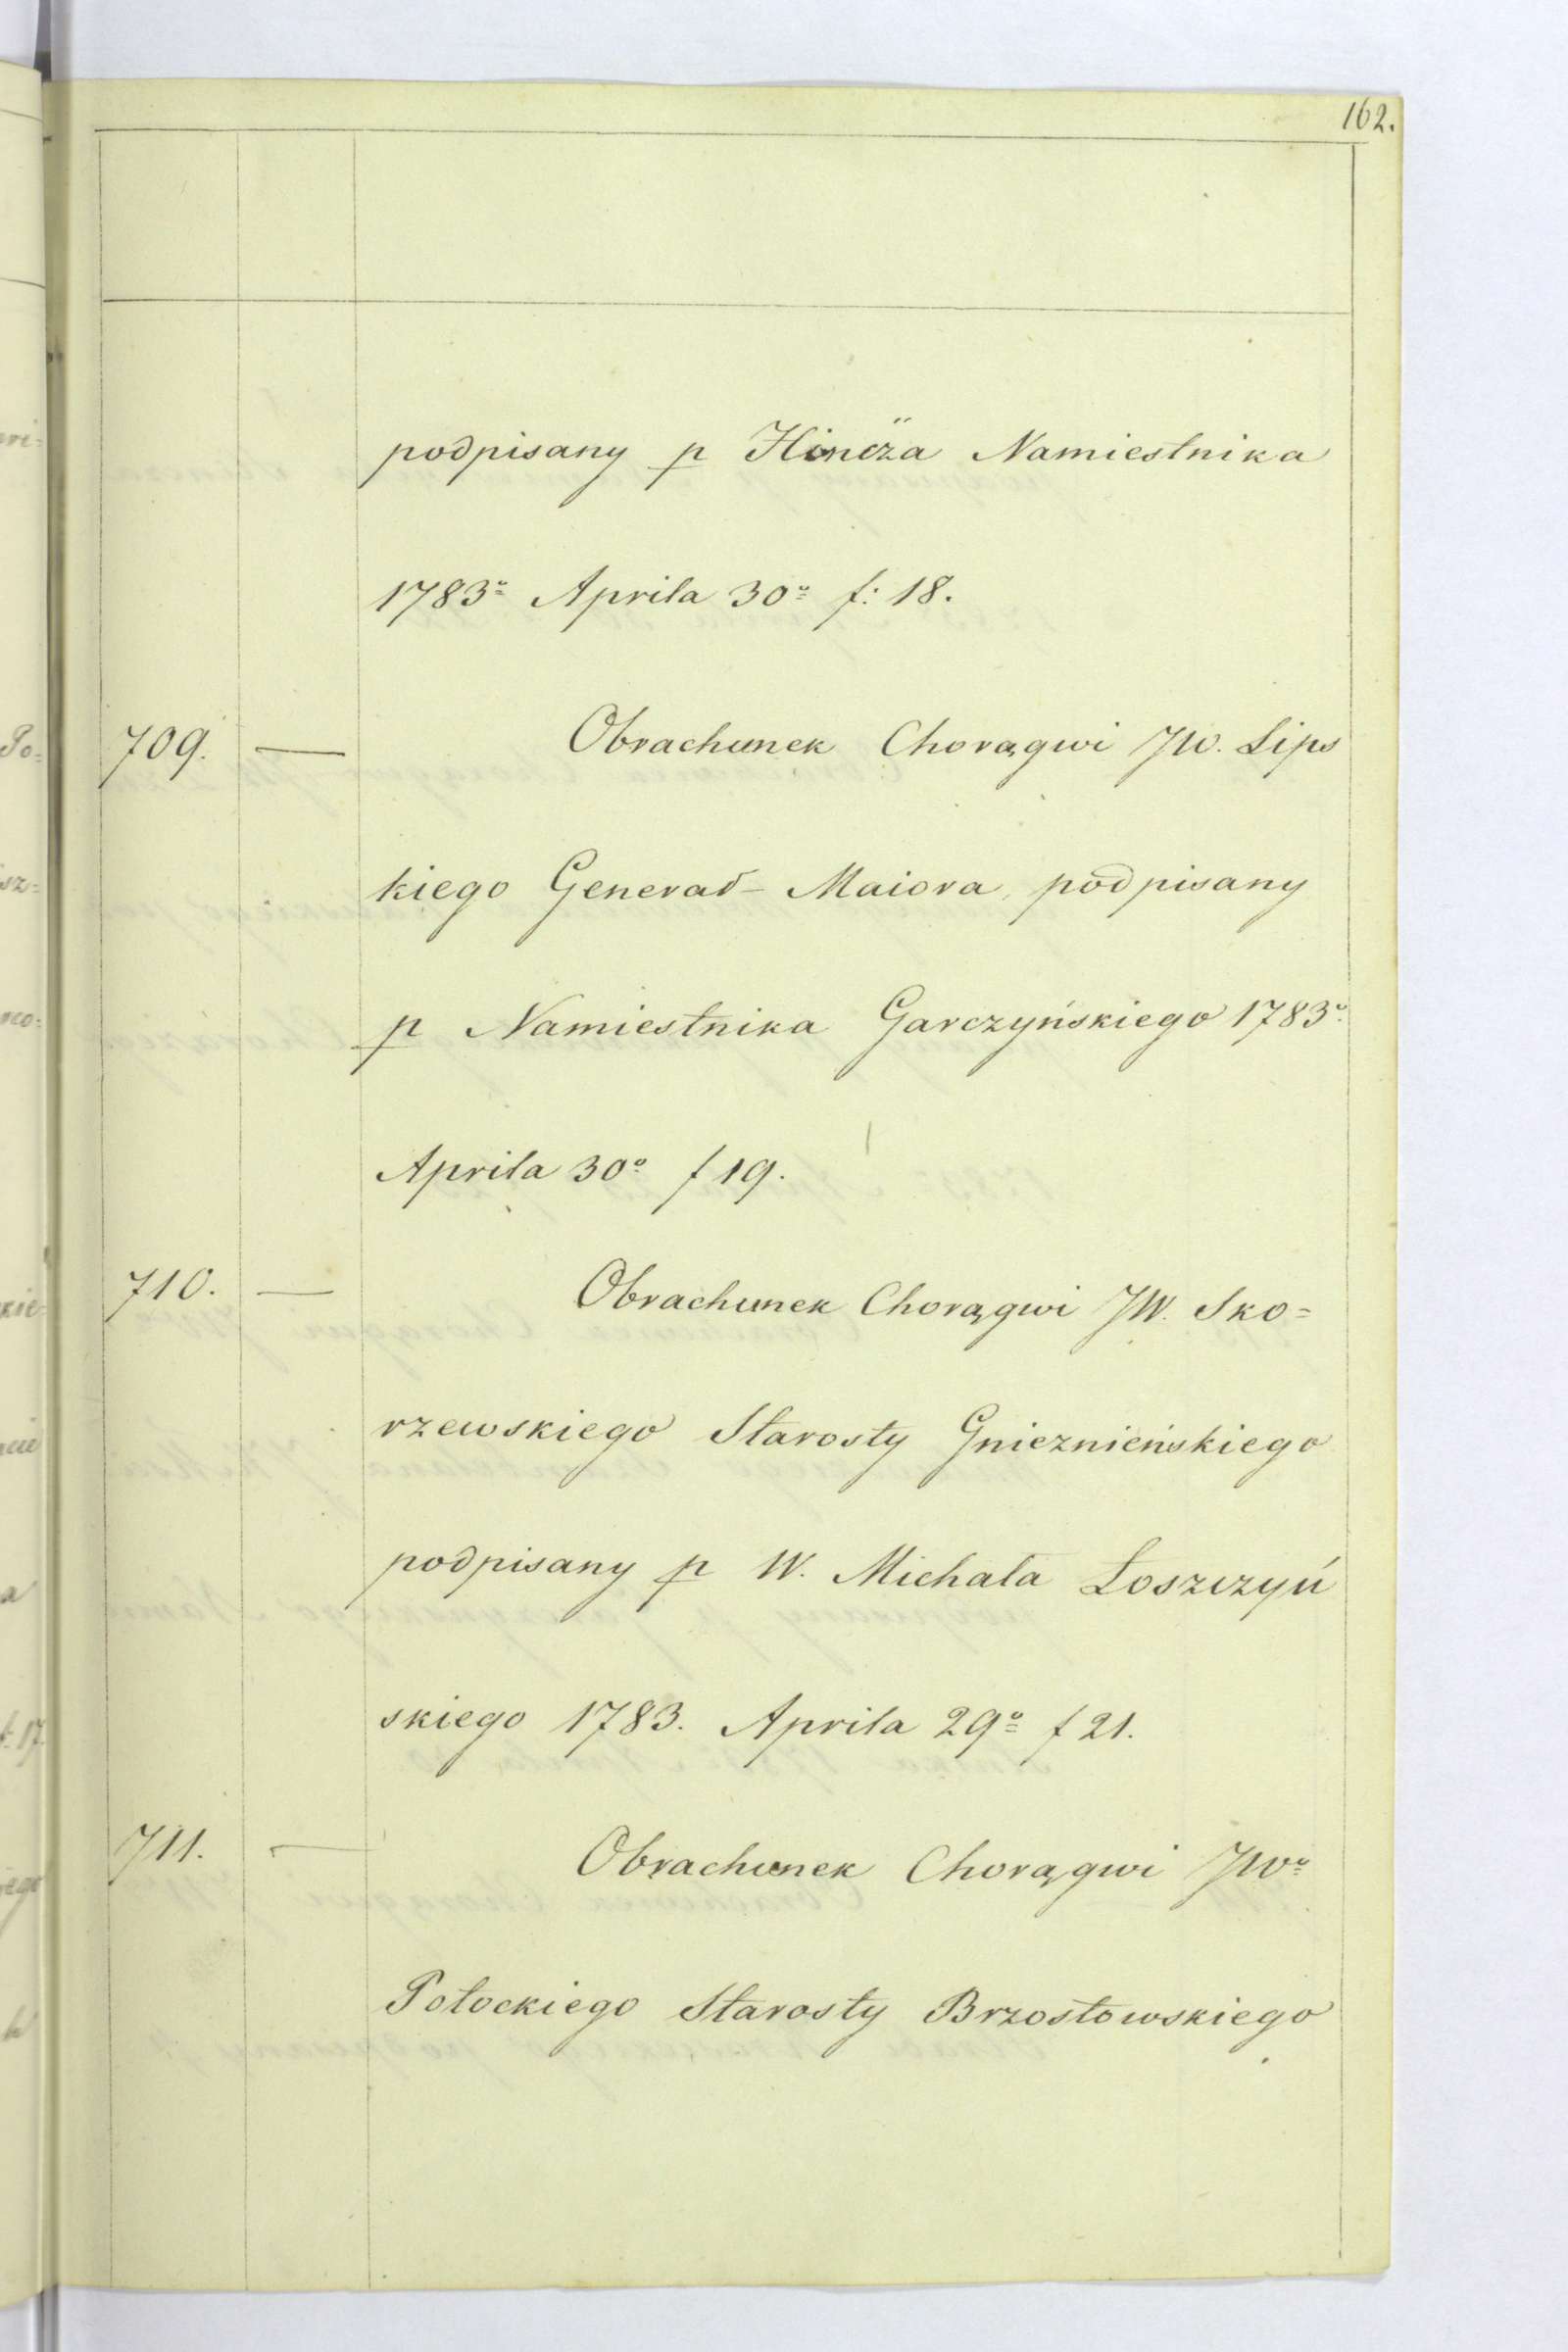 162.
podpisany p Hincza Namiestnika
1783º Aprila 30º f: 18.
709. — Obrachunek Chorągwi JW. Lips
kiego Generał-Maiora, podpisany
p Namiestnika Garczyńskiego 1783º
Aprila 30º f 19.
710. — Obrachunek Chorągwi JW. Sko=
rzewskiego Starosty Gnieznieńskiego
podpisany p W. Michała Łoszczyń
skiego 1783. Aprila 29º f 21.
711. — Obrachunek Chorągwi JWº
Potockiego Starosty Brzostowskiego